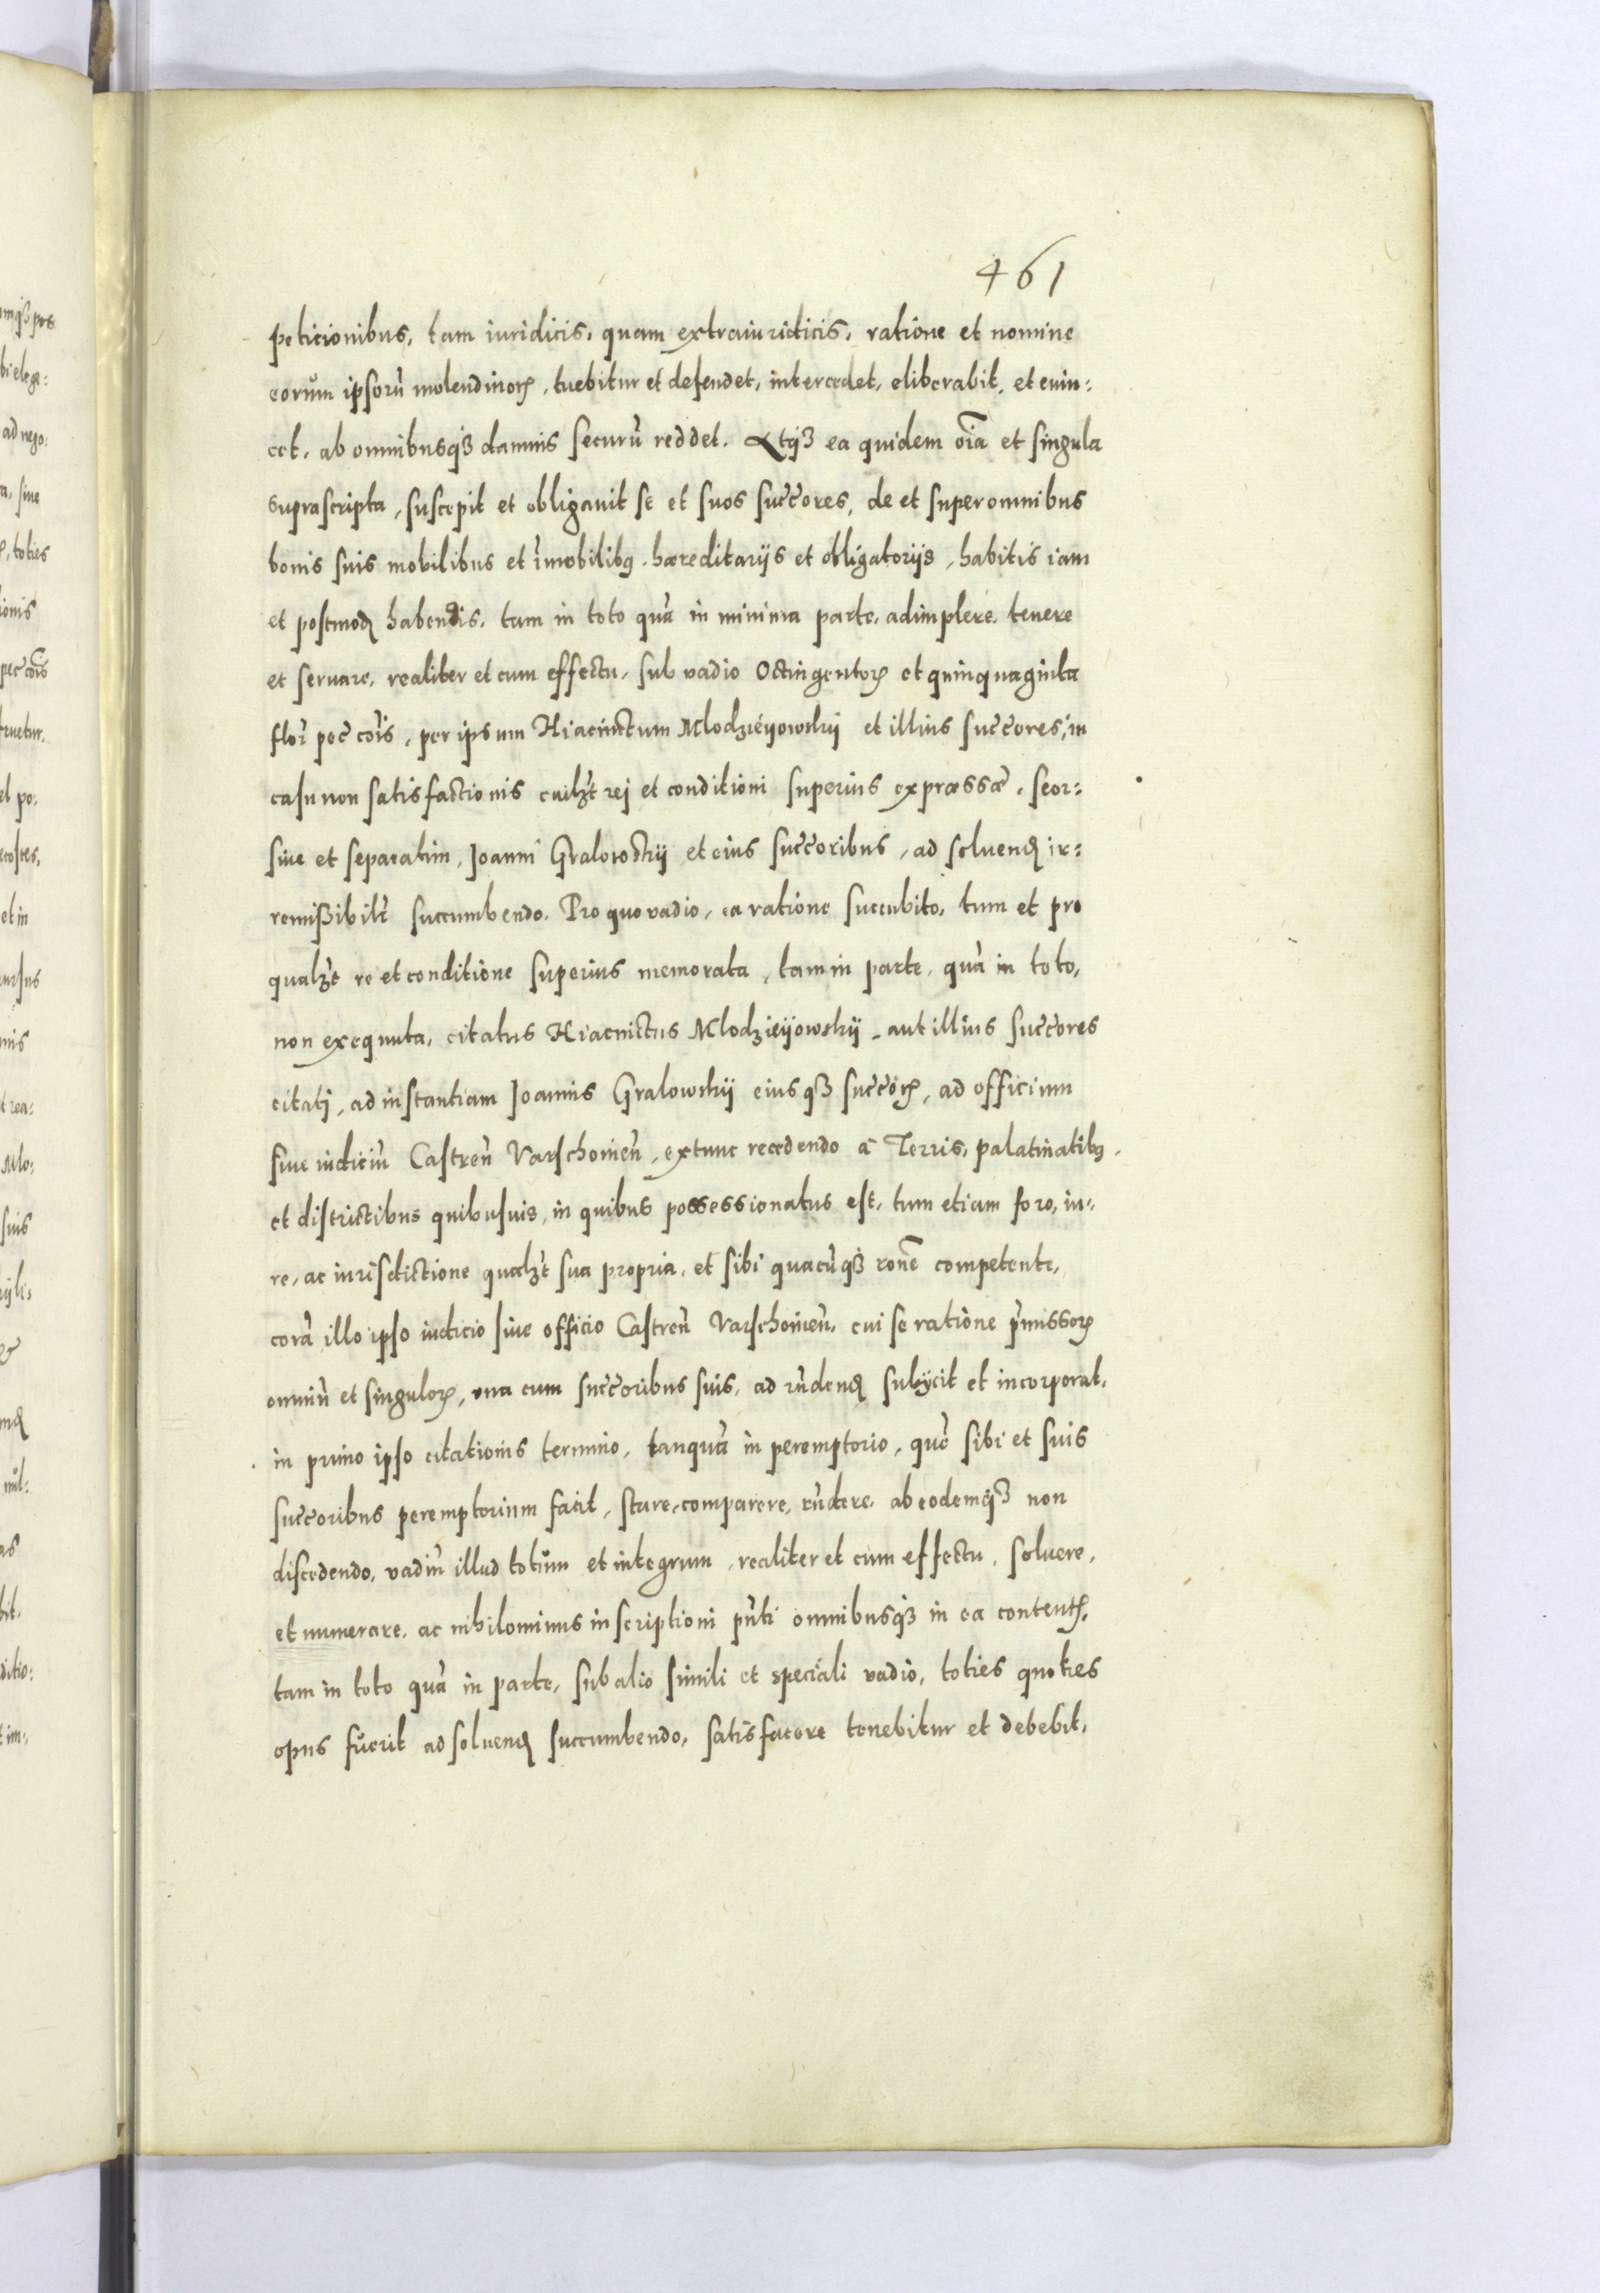 461
peticionibus, tam iuridicis, quam extraiuridicis, ratione et nomine
eorum ipsorū molendinoꝝ, tuebitur et defendet, intercedet, eliberabit, et euin:
cet, ab omnibusqꝫ damnis securū reddet. Atqꝫ ea quidem oīa et singula
suprascripta, suscepit et obligauit se et suos succ̄ores, de et super omnibus
bonis suis mobilibus et īmobilibꝰ, hæreditarijs et obligatorijs, habitis iam
et postmoꝺ habendis, tam in toto quā in minima parte, adimplere, tenere
et seruare, realiter et cum effectu, sub vadio Octingentoꝝ et quinquaginta
flor̄ pec̄ cōis, per ipsum Hiacinctum Mlodzieÿowskÿ et illius succ̄ores, in
casu non satisfactionis cuilꝫt rej et conditioni superius expræssæ, seor:
siue et separatim, Joanni Gralowskÿ et eius succ̄oribus, ad soluenꝺ ir:
remißibilr̄ succumbendo. Pro quo vadio, ea ratione succubito, tum et pro
qualꝫt re et conditione superius memorata, tam in parte, quā in toto,
non exequuta, citatus Hiacinctus Mlodzieÿowskÿ, aut illius succ̄ores
citatj, ad instantiam Joannis Gralowskÿ eiusqꝫ succ̄oꝝ, ad officium
siue iudiciū Castren̄ Varschouien̄, extunc recedendo a Terris, palatinatibꝰ,
et districtibus quibusuis, in quibus possessionatus est, tum etiam foro, iu:
re, ac iurisdictione qualꝫt sua propria, et sibi quacūqꝫ rōne competente,
corā illo ipso iudicio siue officio Castren̄ Varschouien̄, cui se ratione p̄missoꝝ
omniū et singuloꝝ, vna cum succ̄oribus suis, ad rn̄denꝺ subÿcit et incorporat,
in primo ipso citationis termino, tanquā in peremptorio, quē sibi et suis
succ̄oribus peremptorium facit, stare, comparere, rn̄dere, ab eodemqꝫ non
discedendo, vadiū illud totum et integrum, realiter et cum effectu, soluere,
et numerare, ac nihilominus inscriptioni pn̄ti omnibusqꝫ in ea contentꝭ,
tam in toto quā in parte, sub alio simili et speciali vadio, toties quoties
opus fuerit ad soluenꝺ succumbendo, satisfacere tenebitur et debebit,